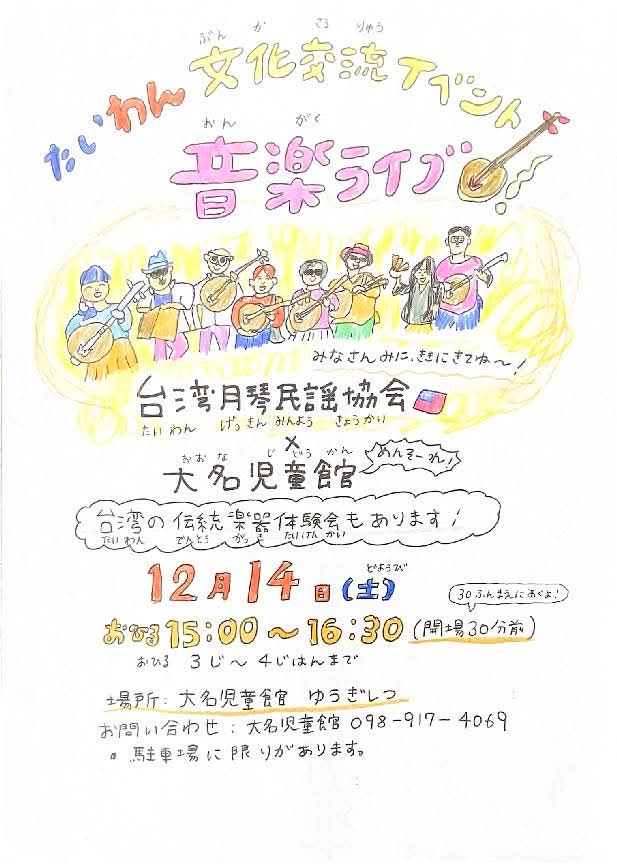 ぶん か こう りゅう
たいわん 文化交流イベント
おん がく
音楽ライブ
みなさんみに、ききにきてね〜!
台湾月琴民謡協会
たいわん げっきん みんよう きょうかい
×
おおな じどうかん
大名児童館
めんそーれ!
台湾の伝統楽器体験会もあります!
たいわん でんとう がっき たいけんかい
どようび
12月14日(土)
30ぷんまえにあくよ!
おひる15:00〜16:30(開場30分前)
おひる 3じ〜4じはんまで
場所:大名児童館 ゆうぎしつ
お問い合わせ:大名児童館 098-917-4069
駐車場に限りがあります。